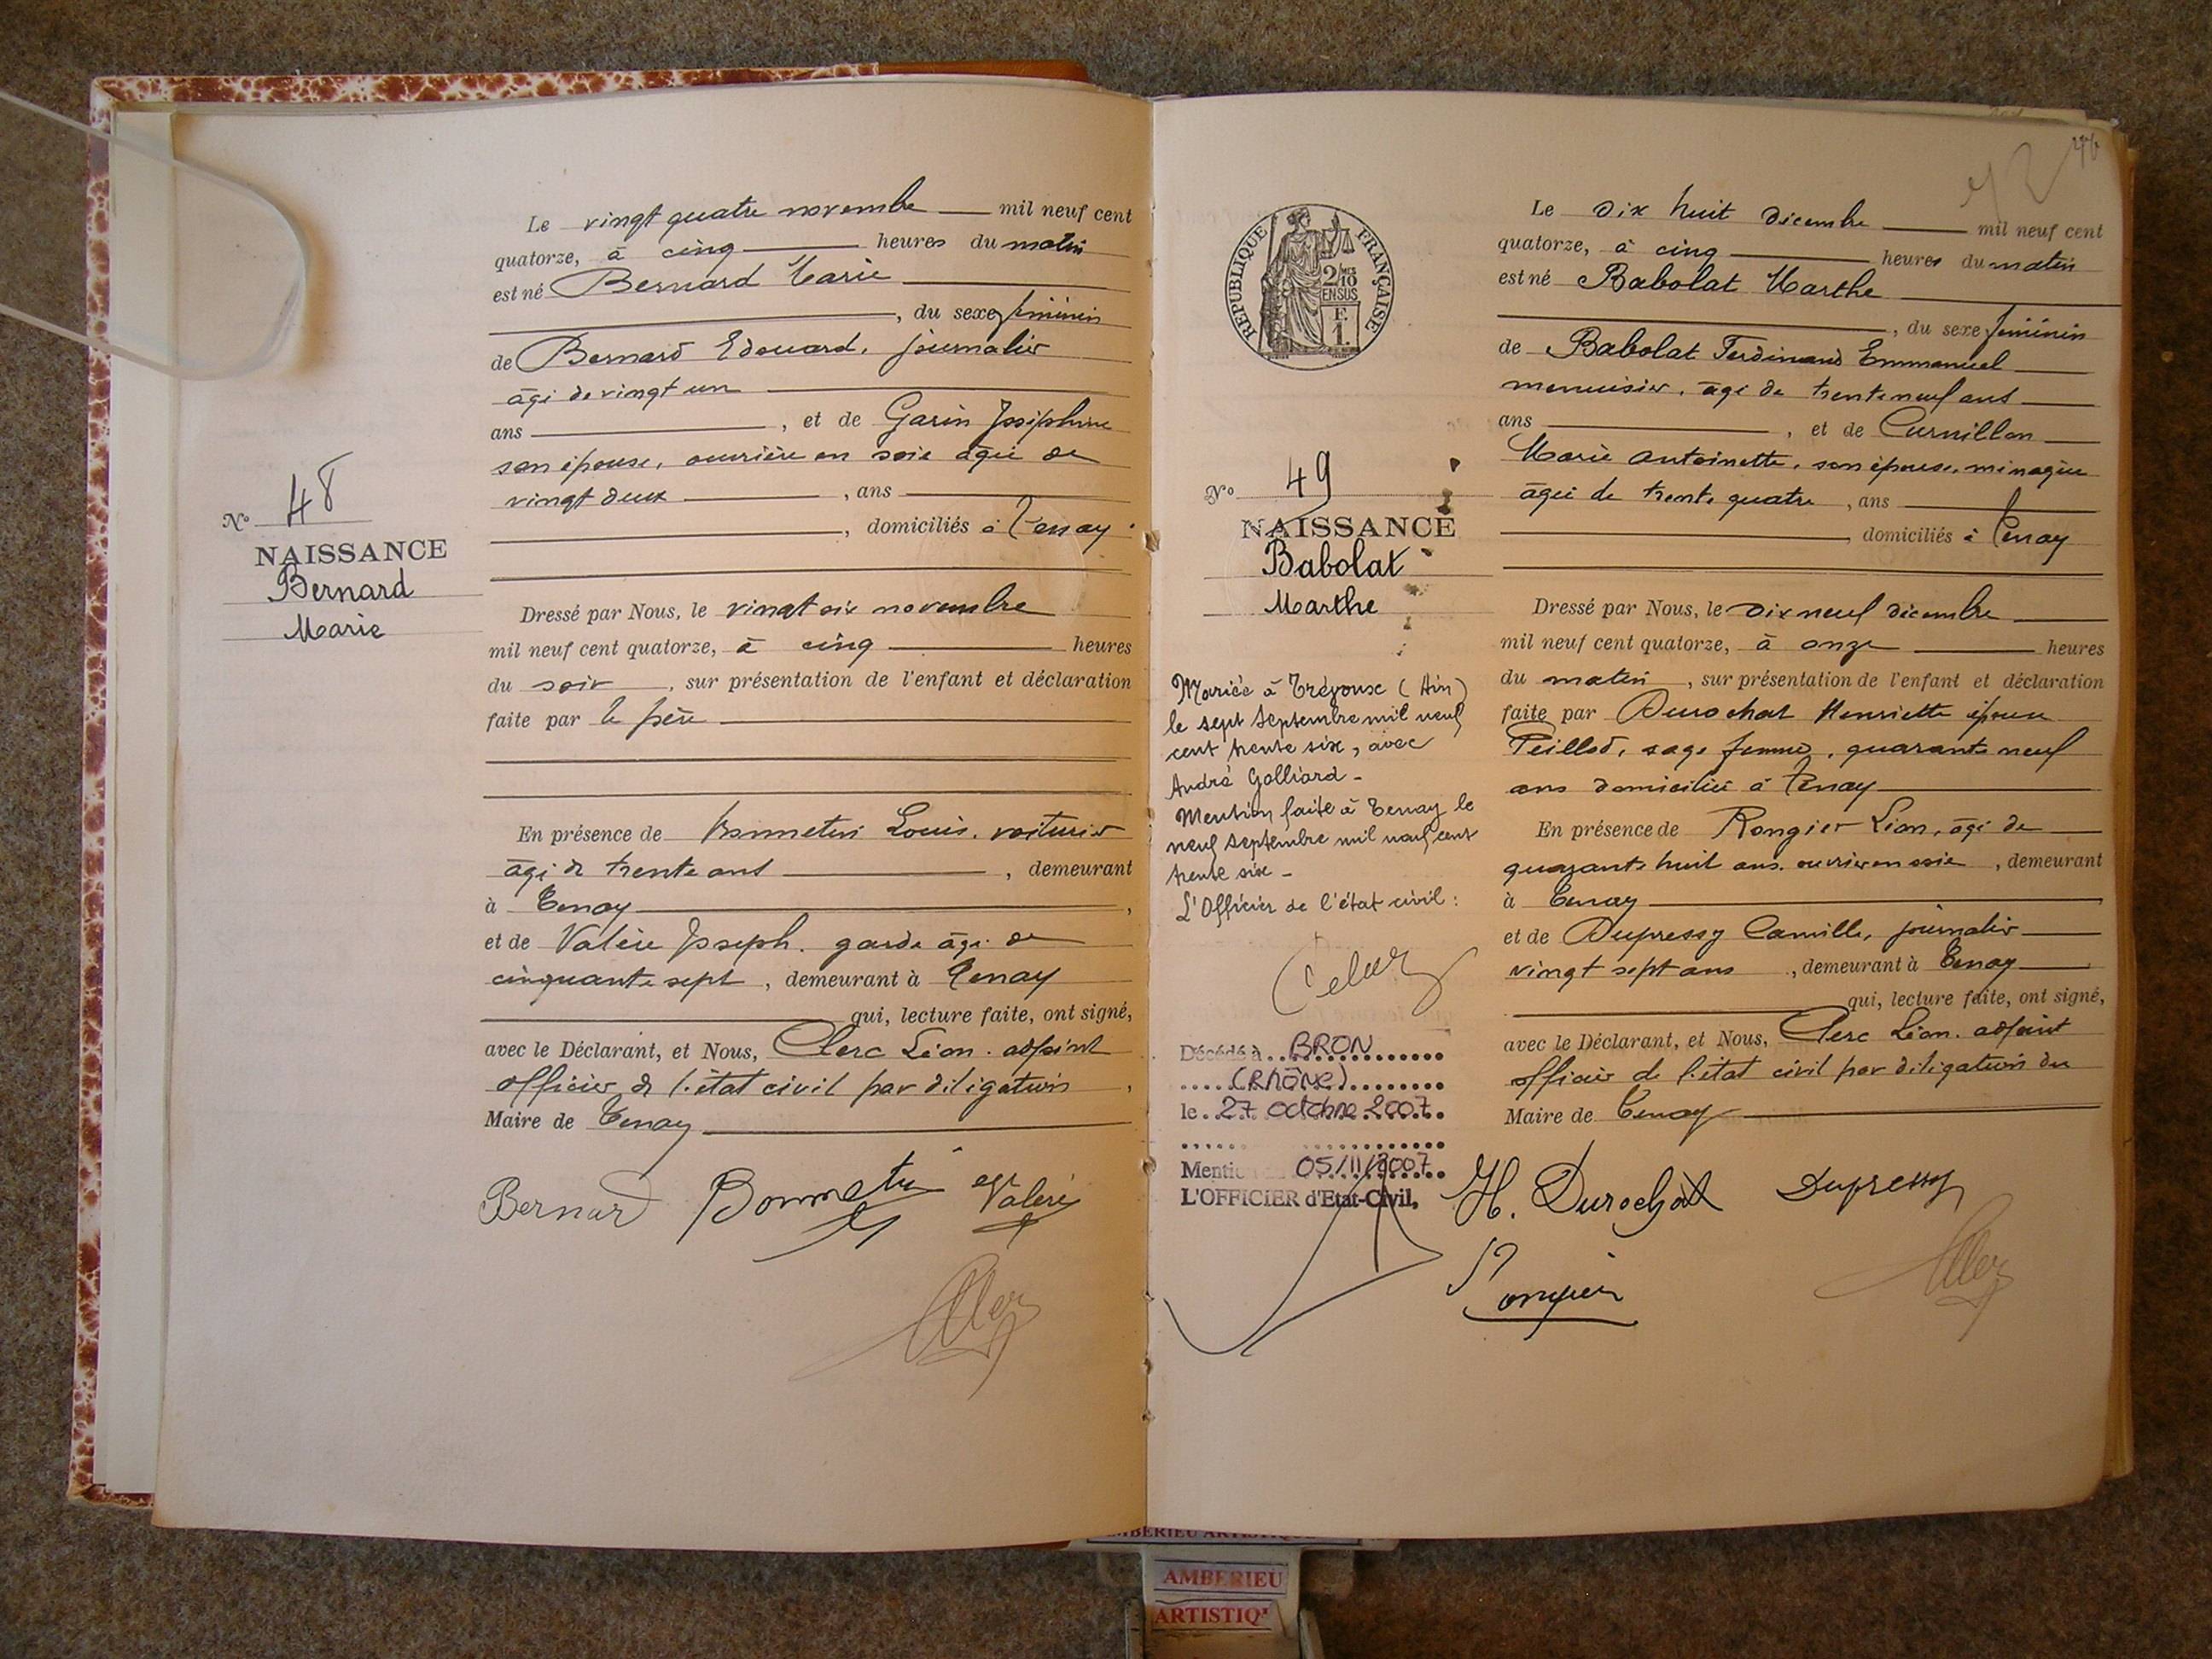 Le vingt quatre novembre mil neuf cent
quatorze, à cinq heures du matin
est né Bernard Marie
, du sexe féminin
de Bernard Edouard, journalier
âgé de vingt un
ans , et de Garin Joséphine
son épouse, ouvrière en soie âgée de
vingt deux , ans
, domiciliés à Tenay.
Nº 48
NAISSANCE
Bernard
Marie
Dressé par Nous, le vingt six novembre
mil neuf cent quatorze, à cinq heures
du soir , sur présentation de l'enfant et déclaration
faite par le père
En présence de Bonneton Louis, voiturier
âgé de trente ans , demeurant
à Tenay ,
et de Valère Joseph. garde âgé de
cinquante sept , demeurant à Tenay
qui, lecture faite, ont signé,
avec le Déclarant, et Nous, Clerc Léon. adjoint
officier de l'état civil par délégation ,
Maire de Tenay
Bernard
Valeri
46
RÉPUBLIQUE FRANÇAISE
2/10 MES
EN SUS
F.
1.
Le dix huit décembre mil neuf cent
quatorze, à cinq heures du matin
est né Babolat Marthe
, du sexe féminin
de Babolat Ferdinand Emmanuel
menuisier, âgé de trente neuf ans
ans , et de Curnillon
Marie Antoinette, son épouse, ménagère
âgée de trente quatre , ans
, domiciliés à Tenay
Nº 49
NAISSANCE
Babolat
Marthe
Mariée à Tréyouse (Ain)
le sept septembre mil neuf
cent trente six, avec
André Galliard -
Mention faite à Tenay le
neuf septembre mil neuf cent
trente six -
L'Officier de l'état civil :
Décédé à BRON
(RHÔNE)
le 27 octobre 2007.
Mention 05/11/2007
L'OFFICIER d'Etat-Civil,
Dressé par Nous, le dix neuf décembre
mil neuf cent quatorze, à onze heures
du matin , sur présentation de l'enfant et déclaration
faite par Durochat Henriette épouse
Peillod, sage femme, quarante neuf
ans domiciliée à Tenay
En présence de Rongier Léon, âgé de
quarante huit ans. ouvrier en soie , demeurant
à Tenay ,
et de Dupressy Camille, journalier
vingt sept ans , demeurant à Tenay
qui, lecture faite, ont signé,
avec le Déclarant, et Nous, Clerc Léon. adjoint
officier de l'état civil par délégation du
Maire de Tenay
H. Durochat Dupressy
Rongier
AMBERIEU ARTISTIQUE
AMBERIEU
ARTISTIQ